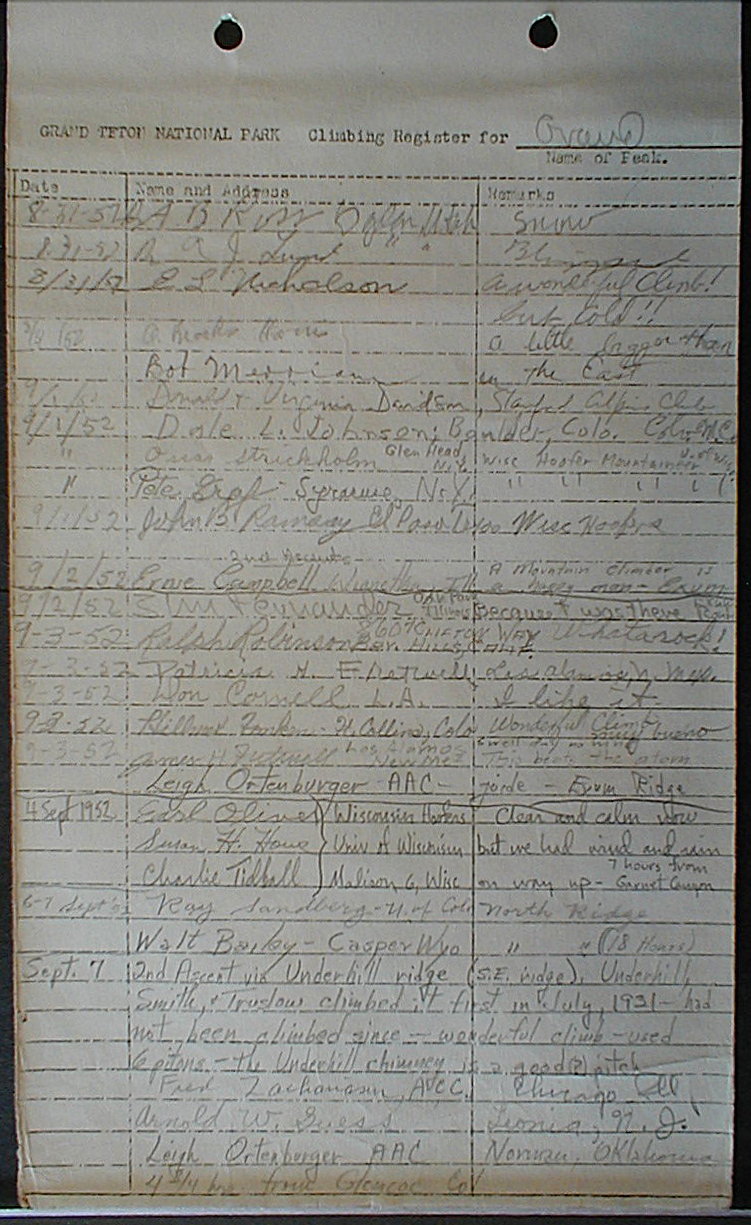 GRAND TETON NATIONAL PARK Climbing Register for Grand
Name of Peak.
Date Name and Address Remarks
8-31-52 A B Ogden Utah Snow
8-31-52 R A J Lund " " Blizzard
8/31/52 E L Nicholson A wonderful Climb!
but Cold!!
a little bigger than
Bob Merriam in the East
9/1/52 Donald & Virginia Davidson, Stanford Alpine Club
9/1/52 Dale L. Johnson; Boulder, Colo. Colo. M.C.
" Strickholm Glen Head N.Y. Wisc Hoofer Mountaineer U. of Wisc
" Pete Syracuse, N.Y. " " " "
9/1/52 John B. Ramsay El Paso Texas Wisc Hoofers
2nd Ascents
9/2/52 Ernie Campbell A Mountain Climber is a happy man - Exum
9/2/52 Oak Park Illinois because I was there
9-3-52 Ralph Robinson Bev. Hills, Calif. What a rock!
9-3-52 Patricia H. Los Alamos, N. Mex.
9-3-52 Don Cornell L.A. I like it
9-3-52 Ft Collins, Colo Wonderful Climb
9-3-52 James H Los Alamos New Mex This beats the atom
Leigh Ortenburger AAC - Exum Ridge
4 Sept 1952 Earl Oliver Wisconsin Hoofers Clear and calm now
Susan H. Howe Univ of Wisconsin but we had wind and rain
Charlie Tidball Madison 6, Wisc on way up - 7 hours from Garnet Canyon
6-7 Sept '52 Ray Sandberg - U. of Colo North Ridge
Walt Bailey - Casper Wyo " " (18 Hours)
Sept. 7 2nd Ascent via Underhill ridge (S.E. ridge). Underhill,
Smith, & Truslow climbed it first in July, 1931 - had
not been climbed since - wonderful climb - used
6 pitons - the Underhill chimney is a good(?) pitch
Fred Zachariasen, Chicago Ill,
Arnold W. Guess Leonia, N.J.
Leigh Ortenburger AAC Norman, Oklahoma
4 3/4 hrs from Glencoe Col